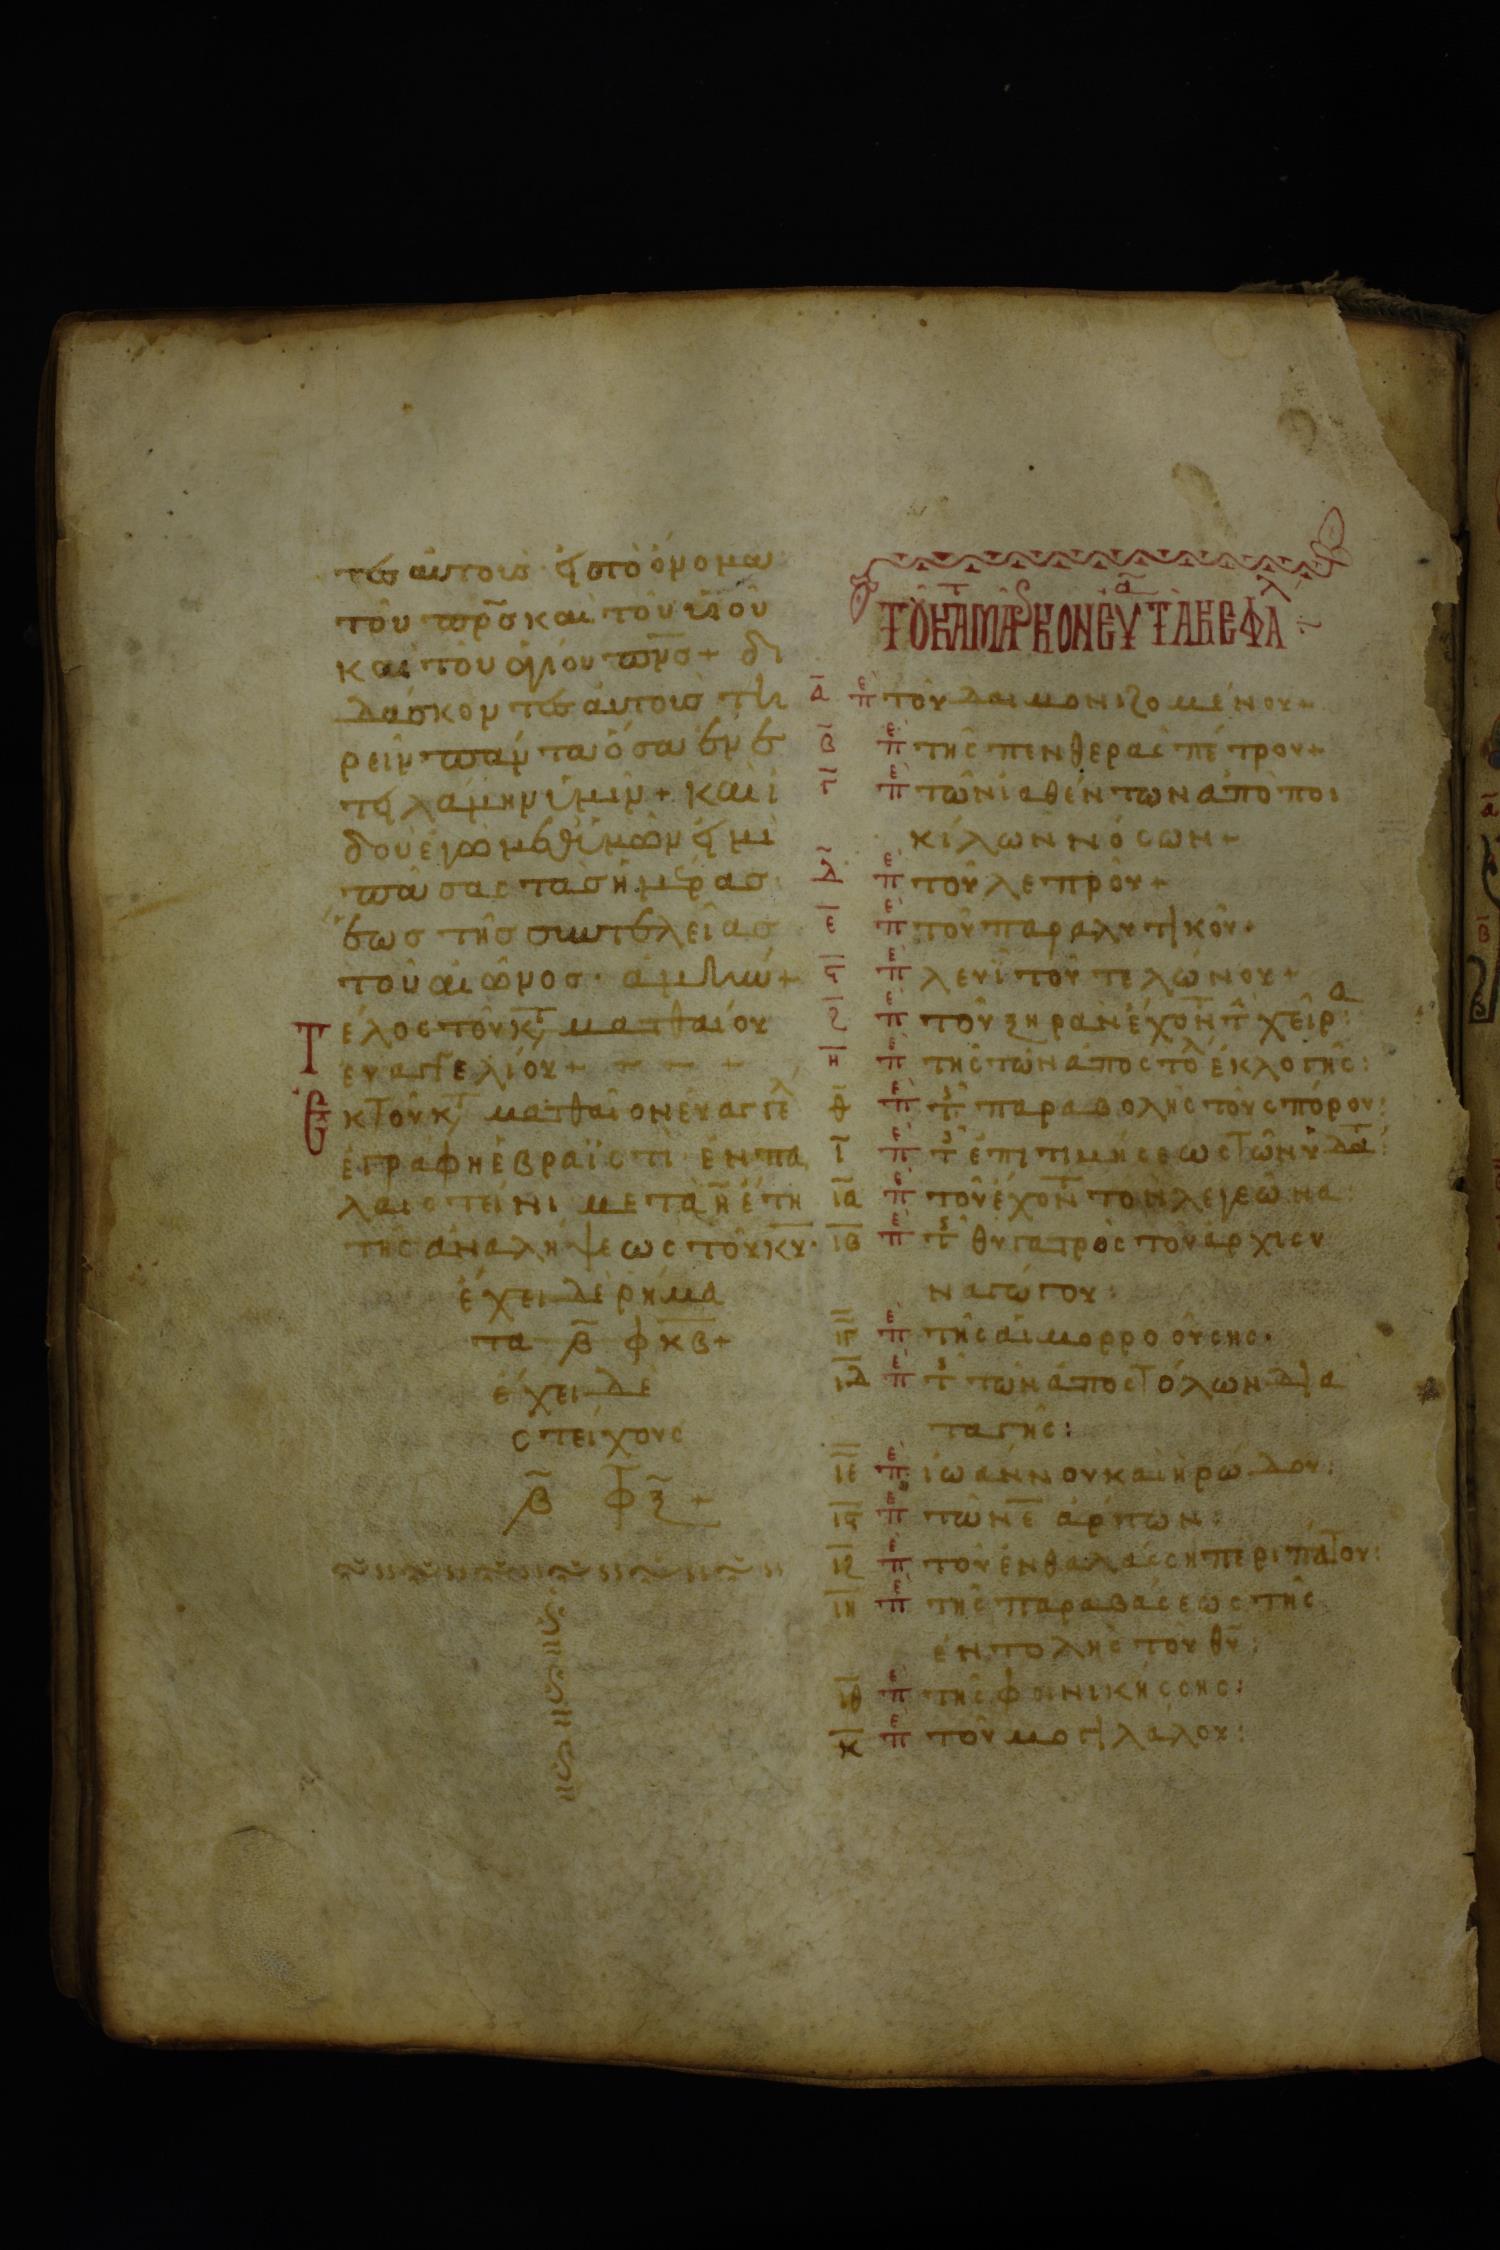 τες αυτοις εις το όνομα
του πρς και του υιου
και του αγίου πνς + δι
δάσκοντες αυτοις τη
ρειν πάντα όσα ενε
τειλάμην υμιν + και ι
δου εγω μεθ υμων ειμι
πάσας τας ημέρας
έως της συντελείας
του αιωνος · αμήν +
Τέλος του κτ ματθαίου
ευαγγελίου +
Εκ του κτ ματθαιον ευαγγελ
εγράφη εβραϊστι εν πα
λαιστείνι μετα η έτη
της αναλήψεως του κυ ·
έχει δε ρήμα
τα β φκβ +
έχει δε
στείχους
β φξ +
ΤΟΥ ΚΑΤΑ ΜΑΡΚΟΝ ΕΥΑ ΤΑ ΚΕΦΑΛ
α πε του δαιμονιζομένου +
β πε της πενθερας πέτρου +
γ πε των ιαθέντων απο ποι
κίλων νόσων +
δ πε του λεπρου +
ε πε του παραλυτικου ·
ς πε λευι του τελώνου +
ζ πε του ξηραν έχοντ τ χειρα :
η πε της των αποστολ εκλογης :
θ πε τ παραβολης του σπόρου :
ι πε τ επιτιμήσεως των υδατ :
ια πε του έχοντ τον λεγεωνα :
ιβ πε τ θυγατρος του αρχισυ
ναγώγου :
ιγ πε της αιμορροούσης ·
ιδ πε τ των αποστόλων δια
ταγης :
ιε πε ιωάννου και ηρώδου :
ις πε των ε άρτων :
ιζ πε του εν θαλάσση περιπάτου :
ιη πε της παραβάσεως της
εντολης του θυ :
ιθ πε της φοινικήσσης :
κ πε του μογιλάλου :